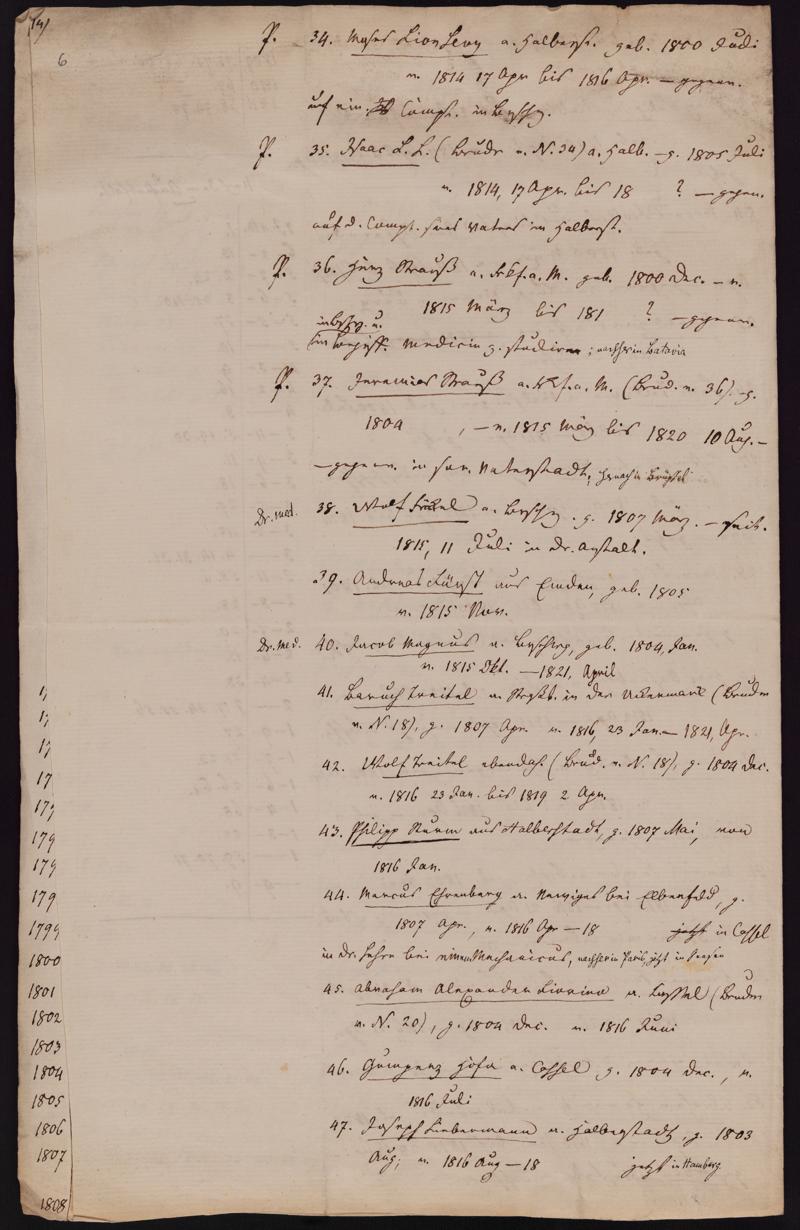 6
P. 34. Moses Lion Levy a. Halberst. geb. 1800 Juli
v. 1814 17 Apr bis 1816 Apr. — gegenw.
auf ein. Compt. in Brschw.
P. 35. Isaac L. L. (Bruder v. N. 34) a. Halb. — g. 1805 Juli
v. 1814, 17 Apr. bis 18 ? — gegenw.
auf d. Compt. seines Vaters in Halberst.
P. 36. Strauß a. Frkf. a. M. geb. 1800 Dec. — v.
1815 März bis 181 ? — gegenw.
im Begriff. Medicin z. studiren; nachher in Batavia
P. 37. Jeremias Strauß a. Frkf. a. M. (Brud. v. 36). g.
1804 , — v. 1815 März bis 1820 10 Aug. —
— gegenw. in sr. Vaterstadt, hernach in Brüssel
Dr. med. 38. Wolf Fränkel a. Brschw. g. 1807 März. — seit.
1815, 11 Juli in dr. Anstalt.
39. Andreas Fürst aus Emden, geb. 1805
v. 1815 Nov.
Dr. med. 40. Jacob Magnus a. Brschwg, geb. 1804, Jan.
v. 1815 Okt. — 1821, April
41. Baruch Treitel a. in der Uckermark (Bruder
v. N. 18), g. 1807 Apr. v. 1816, 23 Jan. — 1821, Apr.
42. Wolf Treitel ebendah. (Brud. v. N. 18), g. 1804 Dec.
v. 1816 23 Jan. bis 1819 2 Apr.
43. Philipp aus Halberstadt, g. 1807 Mai, von
1816 Jan.
44. Marcus Ehrenberg a. bei Elberfeld, g.
1807 Apr., v. 1816 Apr — 18 jetzt in Cassel
in dr. Lehre bei einem Mechanicus, nachher in Paris, jetzt in
45. Abraham Alexander a. Cassel (Bruder
v. N. 20), g. 1804 Dec. v. 1816 Juni
46. Gumperz a. Cassel g. 1804 Dec., v.
1816 Juli
47. Joseph Liebermann a. Halberstadt, g. 1803
Aug; v. 1816 Aug — 18 jetzt in Hamburg
17
179
179
179
1799
1800
1801
1802
1803
1804
1805
1806
1807
1808